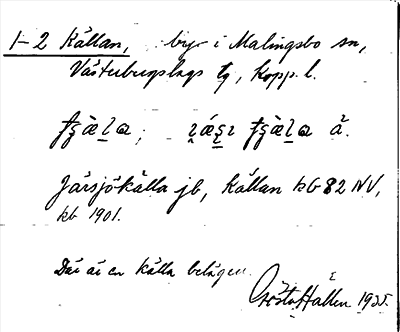 1-2 Källan, byr i Malingsbo sn,
Västerbergslags tg, Kopp. l.
Järsjökälla jb, Källan kb 82 NV,
kb 1901.
Där är en källa belägen.
Gösta Hallén 1935.